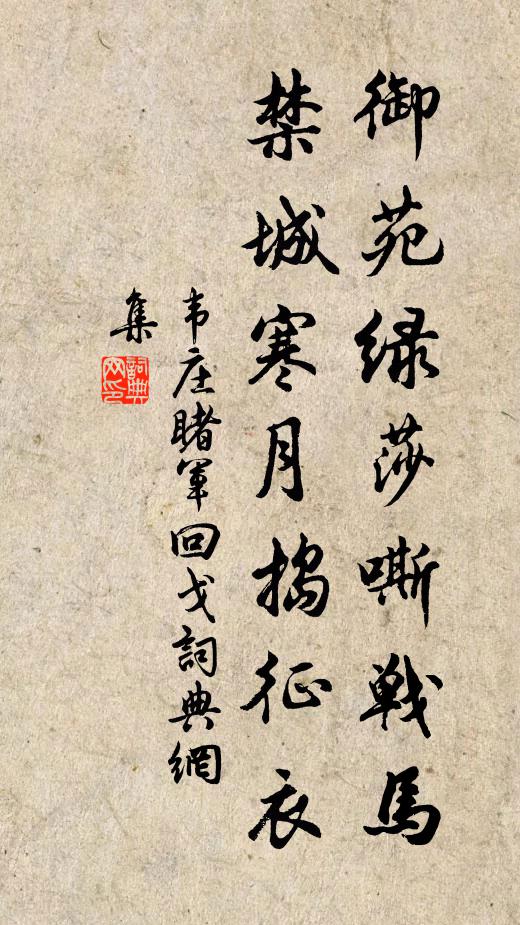 御苑绿莎嘶戰馬
禁城寒月搗征衣
韦庄睹军回戈詞典網
集
詞典
網印